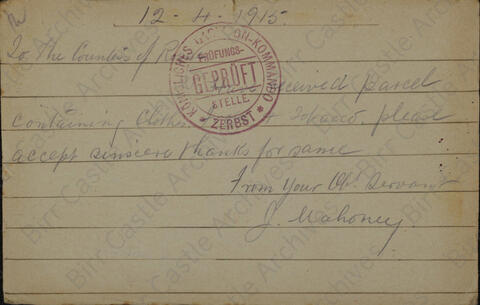 12-4-1915.
To The Countess of
received parcel
containing Tobacco, please
accept sincere thanks for same
From Your Obt. Servant
J. Mahoney.
KÖNIGLICHES GARNISON-KOMMANDO
PRÜFUNGS-
GEPRÜFT
STELLE
* ZERBST *
Birr Castle Archives